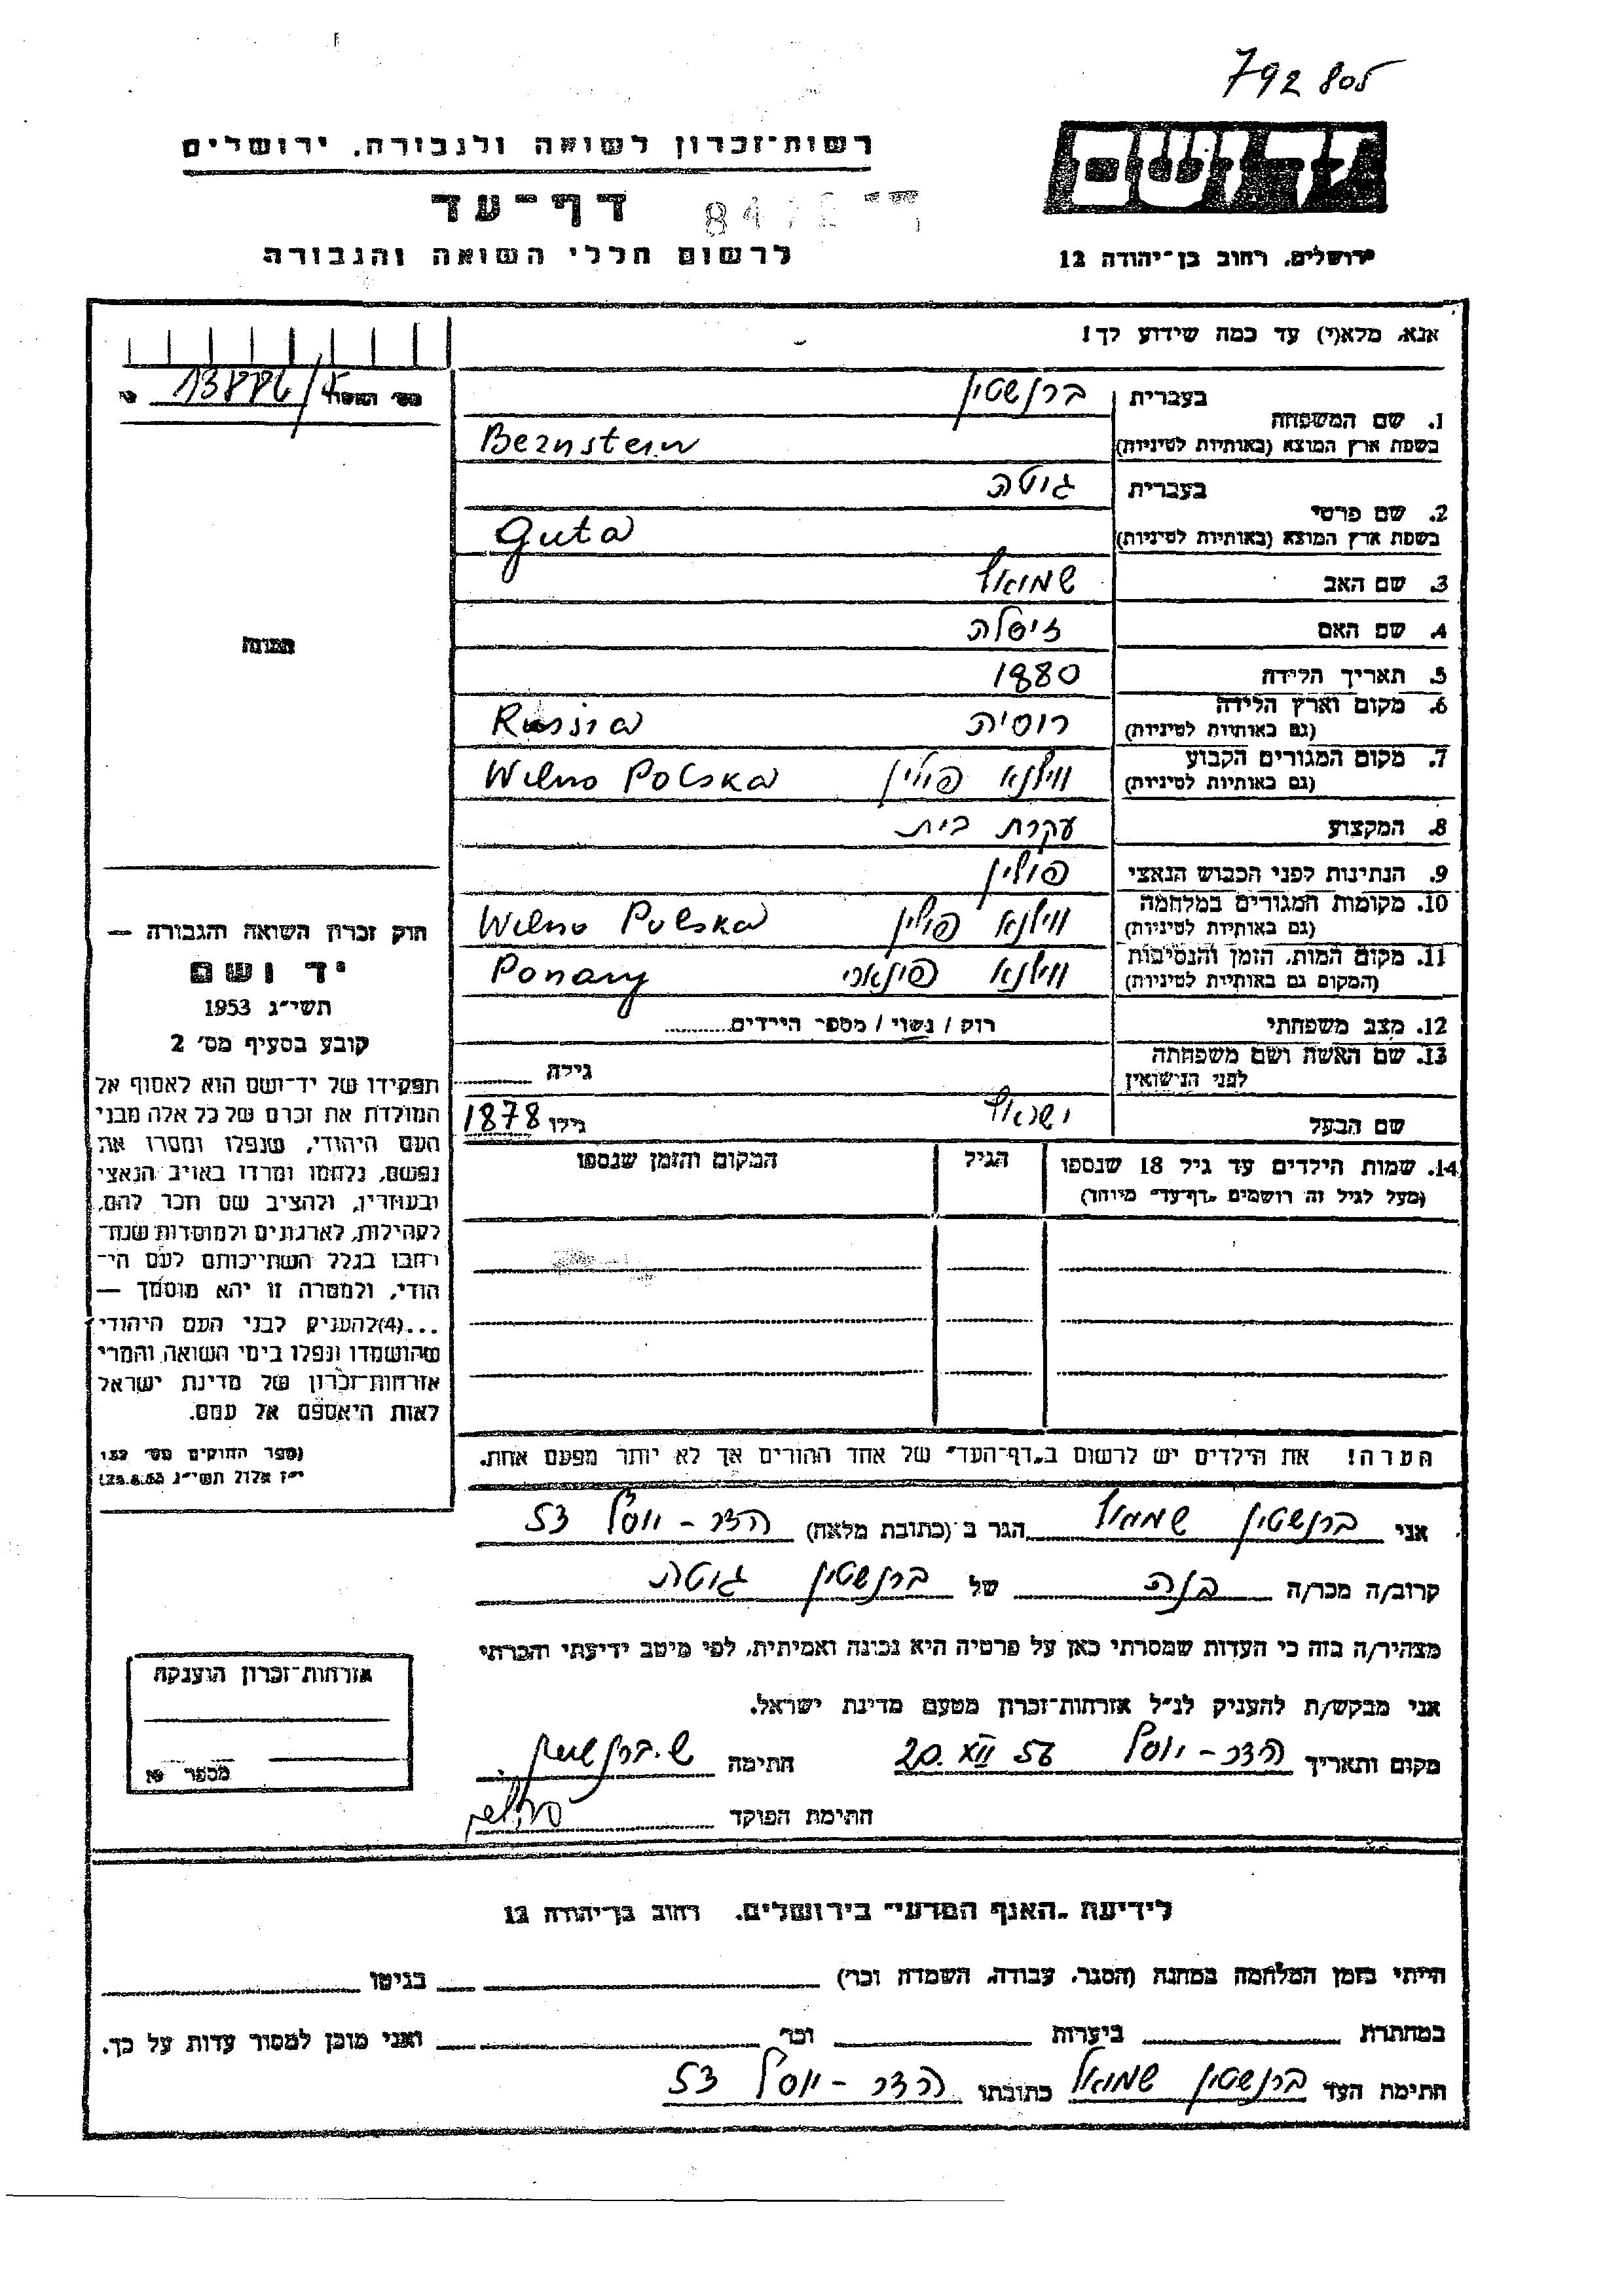 792 805
יד ושם
רשות־זכרון לשואה ולגבורה, ירושלים
דף־עד
לרשום חללי השואה והגבורה
ירושלים, רחוב בן־יהודה 12
אנא, מלא(י) עד כמה שידוע לך!
1. שם המשפחה בעברית ברנשטיין
בשפת ארץ המוצא (באותיות לטיניות) Bernstein
2. שם פרטי בעברית גוטה
בשפת ארץ המוצא (באותיות לטיניות) Guta
3. שם האב שמואל
4. שם האם זיסלה
5. תאריך הלידה 1880
6. מקום וארץ הלידה (גם באותיות לטיניות) רוסיה Russia
7. מקום המגורים הקבוע (גם באותיות לטיניות) ווילנא פולין Wilno Polska
8. המקצוע עקרת בית
9. הנתינות לפני הכבוש הנאצי פולין
10. מקומות המגורים במלחמה (גם באותיות לטיניות) ווילנא פולין Wilno Polska
11. מקום המות, הזמן והנסיבות (המקום גם באותיות לטיניות) ווילנא פונארי Ponary
12. מצב משפחתי רוק / נשוי / מספר הילדים
13. שם האשה ושם משפחתה לפני הנישואין גילה
שם הבעל ישראל גילו 1878
14. שמות הילדים עד גיל 18 שנספו הגיל המקום והזמן שנספו
(מעל לגיל זה רושמים „דף־עד״ מיוחד)
הערה! את הילדים יש לרשום ב„דף־העד״ של אחד ההורים אך לא יותר מפעם אחת.
תמונה
חוק זכרון השואה והגבורה —
יד ושם
תשי״ג 1953
קובע בסעיף מס׳ 2
תפקידו של יד־ושם הוא לאסוף אל
המולדת את זכרם של כל אלה מבני
העם היהודי, שנפלו ומסרו את
נפשם, נלחמו ומרדו באויב הנאצי
ובעוזריו, ולהציב שם וזכר להם,
לקהילות, לארגונים ולמוסדות שנח־
רבו בגלל השתייכותם לעם הי־
הודי, ולמטרה זו יהא מוסמך —
...(4) להעניק לבני העם היהודי
שהושמדו ונפלו בימי השואה והמרי
אזרחות־זכרון של מדינת ישראל
לאות היאספם אל עמם.
(ספר החוקים מס׳ 132
י״ז אלול תשי״ג 28.8.53)
אני ברנשטיין שמואל הגר ב (כתובת מלאה) הדר-יוסף 53
קרוב/ה מכר/ה בנה של ברנשטיין גוטה
מצהיר/ה בזה כי העדות שמסרתי כאן על פרטיה היא נכונה ואמיתית, לפי מיטב ידיעתי והכרתי
אני מבקש/ת להעניק לנ״ל אזרחות־זכרון מטעם מדינת ישראל.
מקום ותאריך הדר-יוסף 20.XII 56 חתימה ש. ברנשטיין
חתימת הפוקד
אזרחות־זכרון הוענקה
מספר
לידיעת „האגף המדעי״ בירושלים, רחוב בן־יהודה 12
הייתי בזמן המלחמה במחנה (הסגר, עבודה, השמדה וכו׳) בגיטו
במחתרת ביערות וכו׳ ואני מוכן למסור עדות על כך.
חתימת העד ברנשטיין שמואל כתובתו הדר-יוסף 53